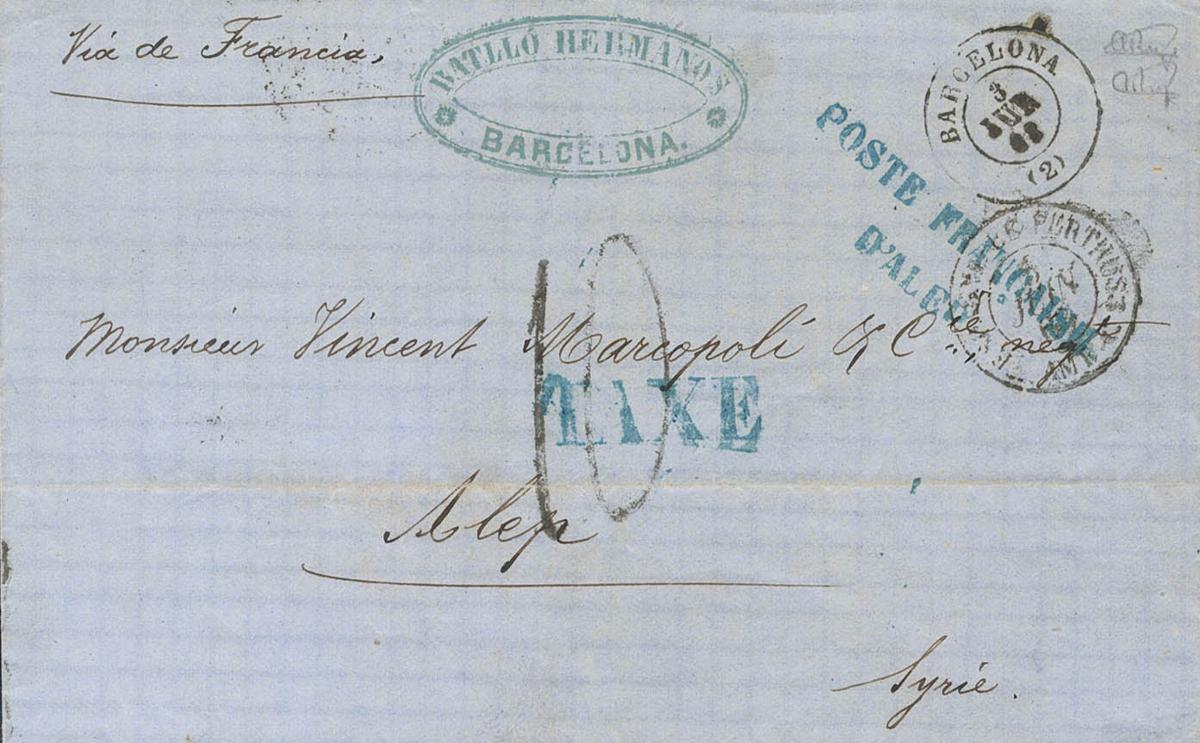 Viá de Francia,
BATLLÓ HERMANOS
BARCELONA.
BARCELONA
3
JUN
68
(2)
POSTE FRANÇAISE
D'ALEP
LE PERTHUS
10
Monsieur Vincent Marcopoli & Cie negt
TAXE
Alep
Syrie.